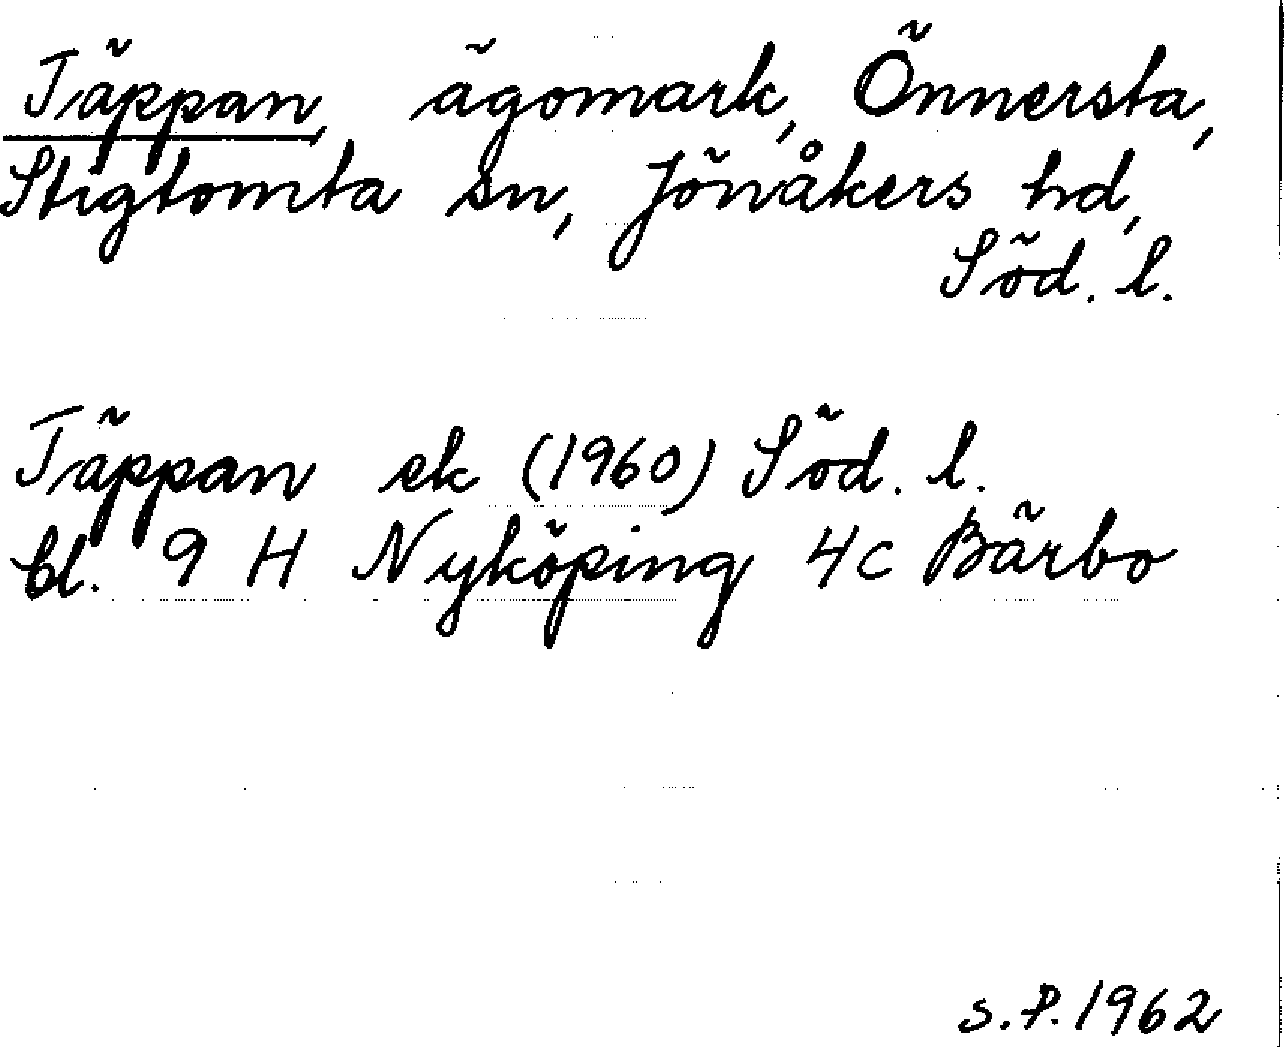 Täppan, ägomark, Önnersta,
Stigtomta sn, Jönåkers hd,
Söd. l.
Täppan ek (1960) Söd. l.
bl. 9 H Nyköping 4c Bärbo
S.P. 1962